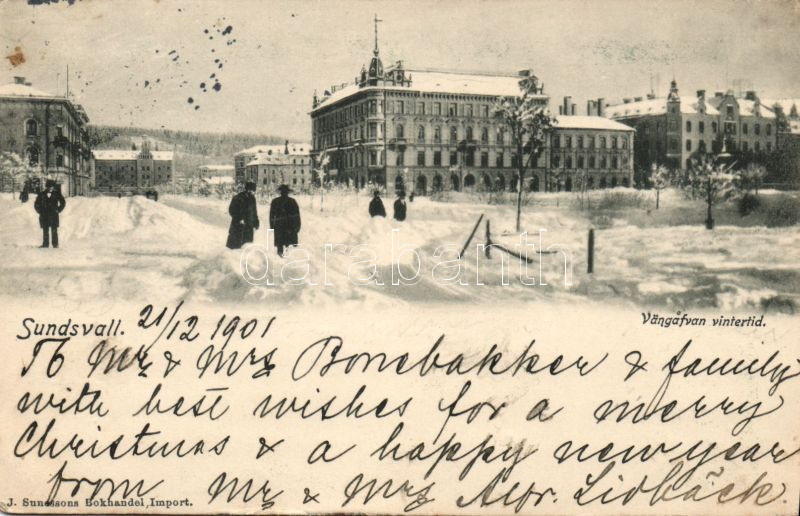 darabanth
Sundsvall. 21/12 1901
Vängåfvan vintertid.
To Mr & Mrs Bonebakker & family
with best wishes for a merry
Christmas & a happy new year
from Mr & Mrs Lidbäck.
J. Sunessons Bokhandel, Import.